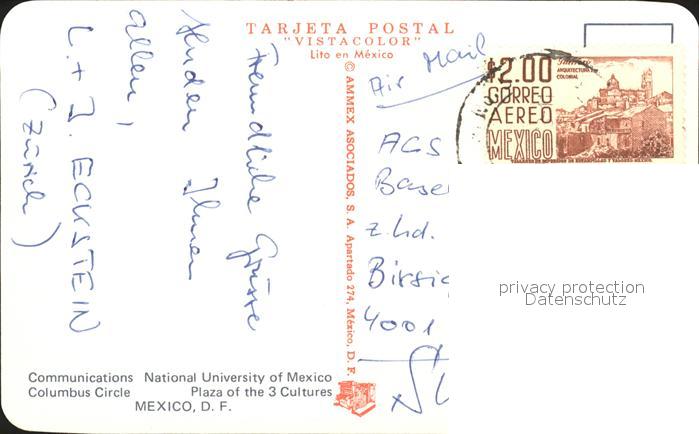 TARJETA POSTAL
"VISTACOLOR"
Lito en México
© AMMEX ASOCIADOS, S. A. Apartado 274, México, D. F.
Freundliche Grüsse
senden Ihnen
allen,
L. + J. ECKSTEIN
(Zürich)
Air Mail
AGS
Base
z. hd.
Birsig
4001
$2.00
CORREO
AEREO
MEXICO
ARQUITECTURA
COLONIAL
privacy protection
Datenschutz
Communications National University of Mexico
Columbus Circle Plaza of the 3 Cultures
MEXICO, D. F.